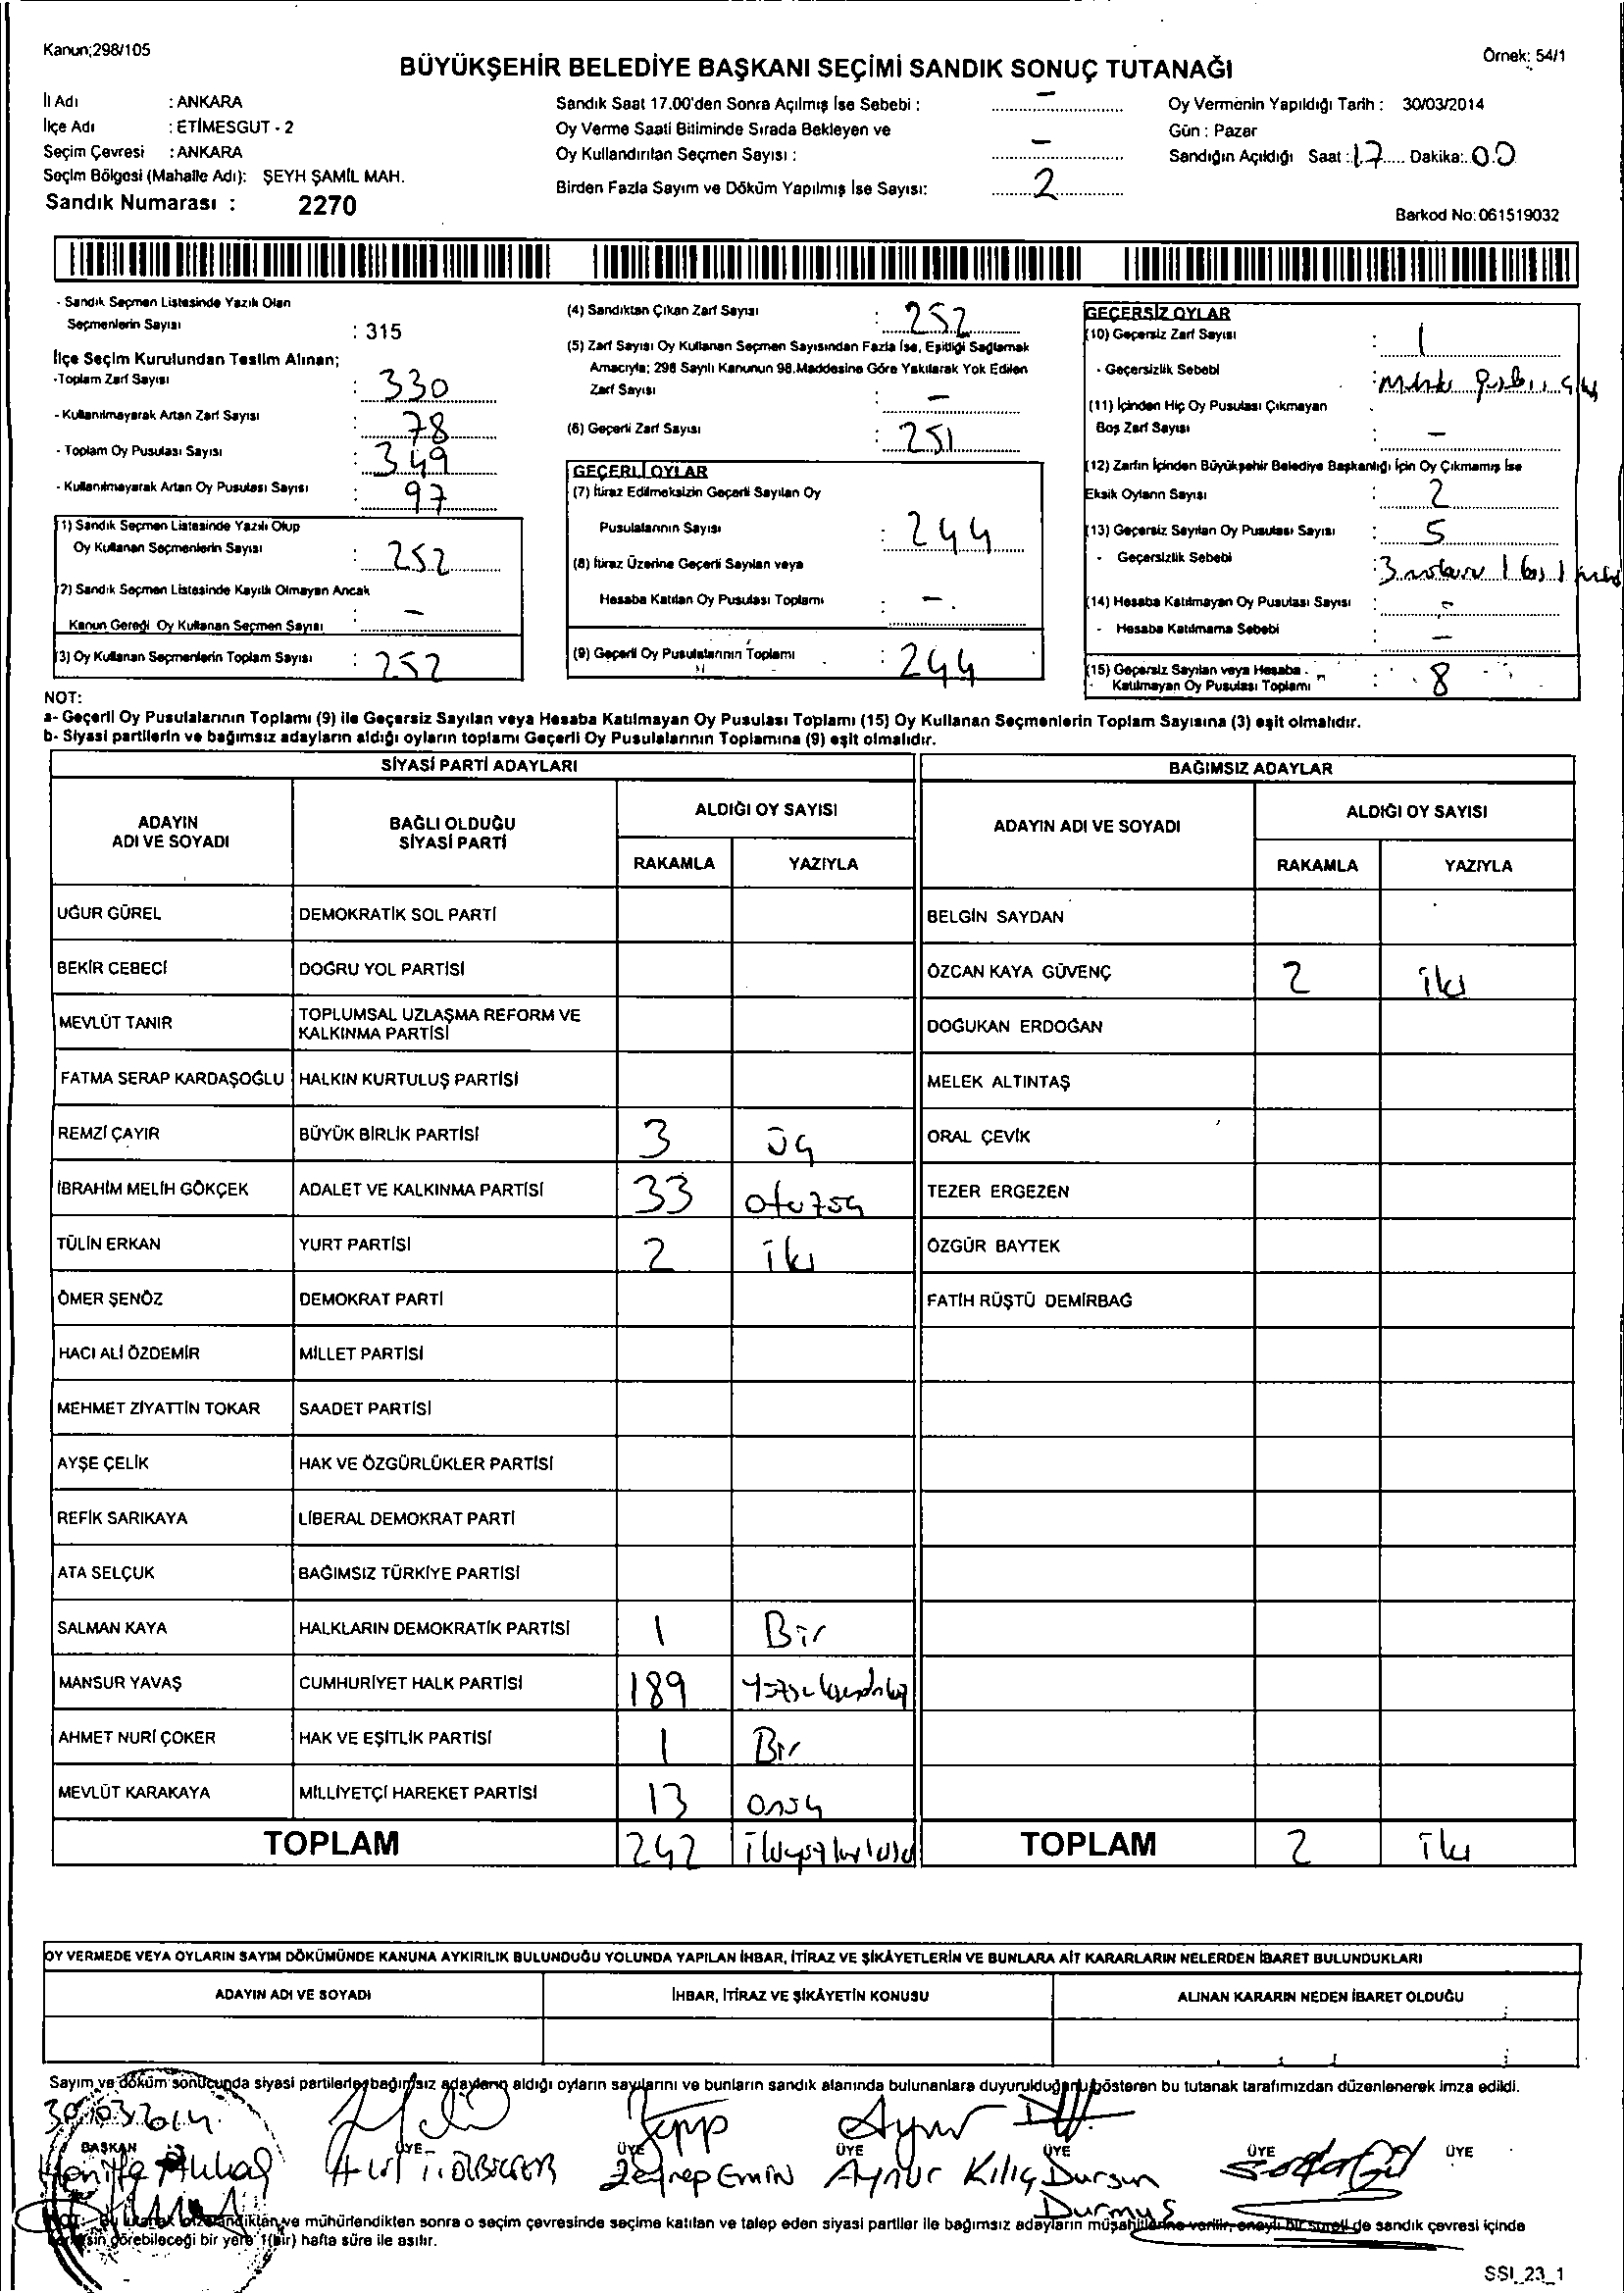 Kanun;298/105
Örnek: 54/1
BÜYÜKŞEHİR BELEDİYE BAŞKANI SEÇİMİ SANDIK SONUÇ TUTANAĞI
İl Adı : ANKARA
İlçe Adı : ETİMESGUT - 2
Seçim Çevresi : ANKARA
Seçim Bölgesi (Mahalle Adı): ŞEYH ŞAMİL MAH.
Sandık Numarası : 2270
Sandık Saat 17.00'den Sonra Açılmış İse Sebebi : -
Oy Verme Saati Bitiminde Sırada Bekleyen ve
Oy Kullandırılan Seçmen Sayısı : -
Birden Fazla Sayım ve Döküm Yapılmış İse Sayısı: 2
Oy Vermenin Yapıldığı Tarih : 30/03/2014
Gün : Pazar
Sandığın Açıldığı Saat : 17 Dakika: 00
Barkod No: 061519032
- Sandık Seçmen Listesinde Yazılı Olan
Seçmenlerin Sayısı : 315
İlçe Seçim Kurulundan Teslim Alınan;
-Toplam Zarf Sayısı : 330
- Kullanılmayarak Artan Zarf Sayısı : 78
- Toplam Oy Pusulası Sayısı : 349
- Kullanılmayarak Artan Oy Pusulası Sayısı : 97
(1) Sandık Seçmen Listesinde Yazılı Olup
Oy Kullanan Seçmenlerin Sayısı : 252
(2) Sandık Seçmen Listesinde Kayıtlı Olmayan Ancak
Kanun Gereği Oy Kullanan Seçmen Sayısı : -
(3) Oy Kullanan Seçmenlerin Toplam Sayısı : 252
(4) Sandıktan Çıkan Zarf Sayısı : 252
(5) Zarf Sayısı Oy Kullanan Seçmen Sayısından Fazla İse, Eşitliği Sağlamak
Amacıyla; 298 Sayılı Kanunun 98.Maddesine Göre Yakılarak Yok Edilen
Zarf Sayısı : -
(6) Geçerli Zarf Sayısı : 251
GEÇERLİ OYLAR
(7) İtiraz Edilmeksizin Geçerli Sayılan Oy
Pusulalarının Sayısı : 244
(8) İtiraz Üzerine Geçerli Sayılan veya
Hesaba Katılan Oy Pusulası Toplamı : -
(9) Geçerli Oy Pusulalarının Toplamı : 244
GEÇERSİZ OYLAR
(10) Geçersiz Zarf Sayısı : 1
- Geçersizlik Sebebi :
(11) İçinden Hiç Oy Pusulası Çıkmayan
Boş Zarf Sayısı : -
(12) Zarfın İçinden Büyükşehir Belediye Başkanlığı İçin Oy Çıkmamış İse
Eksik Oyların Sayısı : 2
(13) Geçersiz Sayılan Oy Pusulası Sayısı : 5
- Geçersizlik Sebebi : 3
(14) Hesaba Katılmayan Oy Pusulası Sayısı : -
- Hesaba Katılmama Sebebi : -
(15) Geçersiz Sayılan veya Hesaba
Katılmayan Oy Pusulası Toplamı : 8
NOT:
a- Geçerli Oy Pusulalarının Toplamı (9) ile Geçersiz Sayılan veya Hesaba Katılmayan Oy Pusulası Toplamı (15) Oy Kullanan Seçmenlerin Toplam Sayısına (3) eşit olmalıdır.
b- Siyasi partilerin ve bağımsız adayların aldığı oyların toplamı Geçerli Oy Pusulalarının Toplamına (9) eşit olmalıdır.
SİYASİ PARTİ ADAYLARI
ADAYIN ADI VE SOYADI BAĞLI OLDUĞU SİYASİ PARTİ ALDIĞI OY SAYISI
RAKAMLA YAZIYLA
UĞUR GÜREL DEMOKRATİK SOL PARTİ
BEKİR CEBECİ DOĞRU YOL PARTİSİ
MEVLÜT TANIR TOPLUMSAL UZLAŞMA REFORM VE KALKINMA PARTİSİ
FATMA SERAP KARDAŞOĞLU HALKIN KURTULUŞ PARTİSİ
REMZİ ÇAYIR BÜYÜK BİRLİK PARTİSİ 3 üç
İBRAHİM MELİH GÖKÇEK ADALET VE KALKINMA PARTİSİ 33 otuzüç
TÜLİN ERKAN YURT PARTİSİ 2 iki
ÖMER ŞENÖZ DEMOKRAT PARTİ
HACI ALİ ÖZDEMİR MİLLET PARTİSİ
MEHMET ZİYATTİN TOKAR SAADET PARTİSİ
AYŞE ÇELİK HAK VE ÖZGÜRLÜKLER PARTİSİ
REFİK SARIKAYA LİBERAL DEMOKRAT PARTİ
ATA SELÇUK BAĞIMSIZ TÜRKİYE PARTİSİ
SALMAN KAYA HALKLARIN DEMOKRATİK PARTİSİ 1 Bir
MANSUR YAVAŞ CUMHURİYET HALK PARTİSİ 189
AHMET NURİ ÇOKER HAK VE EŞİTLİK PARTİSİ 1 Bir
MEVLÜT KARAKAYA MİLLİYETÇİ HAREKET PARTİSİ 13 onüç
TOPLAM 242
BAĞIMSIZ ADAYLAR
ADAYIN ADI VE SOYADI ALDIĞI OY SAYISI
RAKAMLA YAZIYLA
BELGİN SAYDAN
ÖZCAN KAYA GÜVENÇ 2 iki
DOĞUKAN ERDOĞAN
MELEK ALTINTAŞ
ORAL ÇEVİK
TEZER ERGEZEN
ÖZGÜR BAYTEK
FATİH RÜŞTÜ DEMİRBAĞ
TOPLAM 2 iki
OY VERMEDE VEYA OYLARIN SAYIM DÖKÜMÜNDE KANUNA AYKIRILIK BULUNDUĞU YOLUNDA YAPILAN İHBAR, İTİRAZ VE ŞİKÂYETLERİN VE BUNLARA AİT KARARLARIN NELERDEN İBARET BULUNDUKLARI
ADAYIN ADI VE SOYADI İHBAR, İTİRAZ VE ŞİKÂYETİN KONUSU ALINAN KARARIN NEDEN İBARET OLDUĞU
Sayım ve döküm sonucunda siyasi partilerle bağımsız adayların aldığı oyların sayılarını ve bunların sandık alanında bulunanlara duyurulduğunu gösteren bu tutanak tarafımızdan düzenlenerek imza edildi.
30.03.2014
BAŞKAN ÜYE ÜYE ÜYE ÜYE ÜYE ÜYE
Zeynep Emin Aynur Kılıç Dursun
Durmuş
mühürlendikten sonra o seçim çevresinde seçime katılan ve talep eden siyasi partiler ile bağımsız adayların müşahitlerine verilir, onaylı bir sureti de sandık çevresi içinde
görebileceği bir yere 1(bir) hafta süre ile asılır.
SSI_23_1